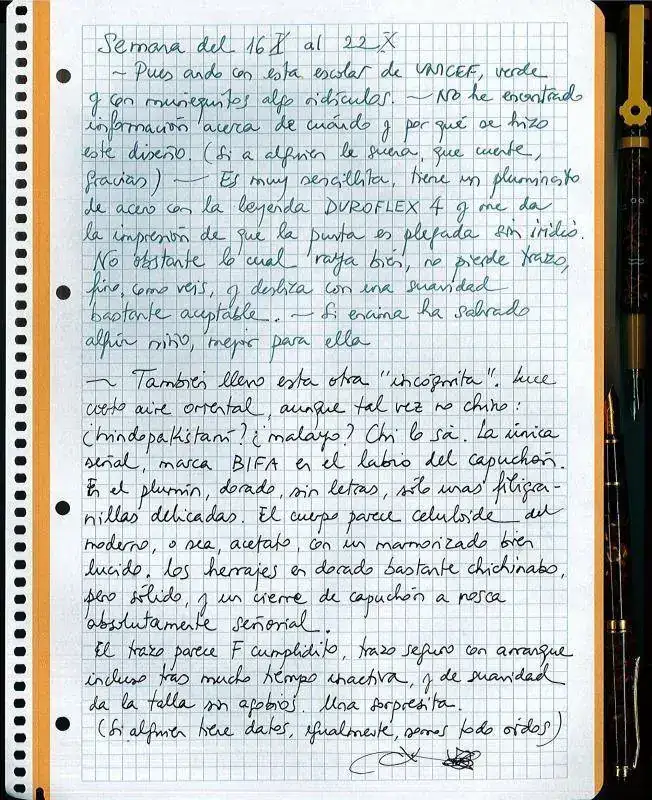 Semana del 16 X al 22 X
~ Pues ando con esta escolar de UNICEF, verde
y con muñequitos algo ridículos. — No he encontrado
información acerca de cuándo y por qué se hizo
este diseño. (Si a alguien le suena, que cuente,
gracias) — Es muy sencillita, tiene un pluminsito
de acero con la leyenda DUROFLEX 4 y me da
la impresión de que la punta es plegada sin iridio.
No obstante lo cual raya bien, no pierde trazo,
fino, como veis, y desliza con una suavidad
bastante aceptable. — Si encima ha salvado
algún niño, mejor para ella
~ También llevo esta otra "incógnita". Luce
cierto aire oriental, aunque tal vez no chino:
¿hindopakistaní? ¿malayo? Chi lo sà. La única
señal, marca BIFA en el labio del capuchón.
En el plumín, dorado, sin letras, sólo unas filigra-
nillas delicadas. El cuerpo parece celuloide del
moderno, o sea, acetato, con un marmorizado bien
lucido. Los herrajes en dorado bastante chichinabo,
pero sólido, y un cierre de capuchón a rosca
absolutamente señorial.
El trazo parece F cumplidito, trazo seguro con arranque
incluso tras mucho tiempo inactiva, y de suavidad
da la talla sin agobios. Una sorpresita.
(Si alguien tiene datos, igualmente, somos todo oídos)